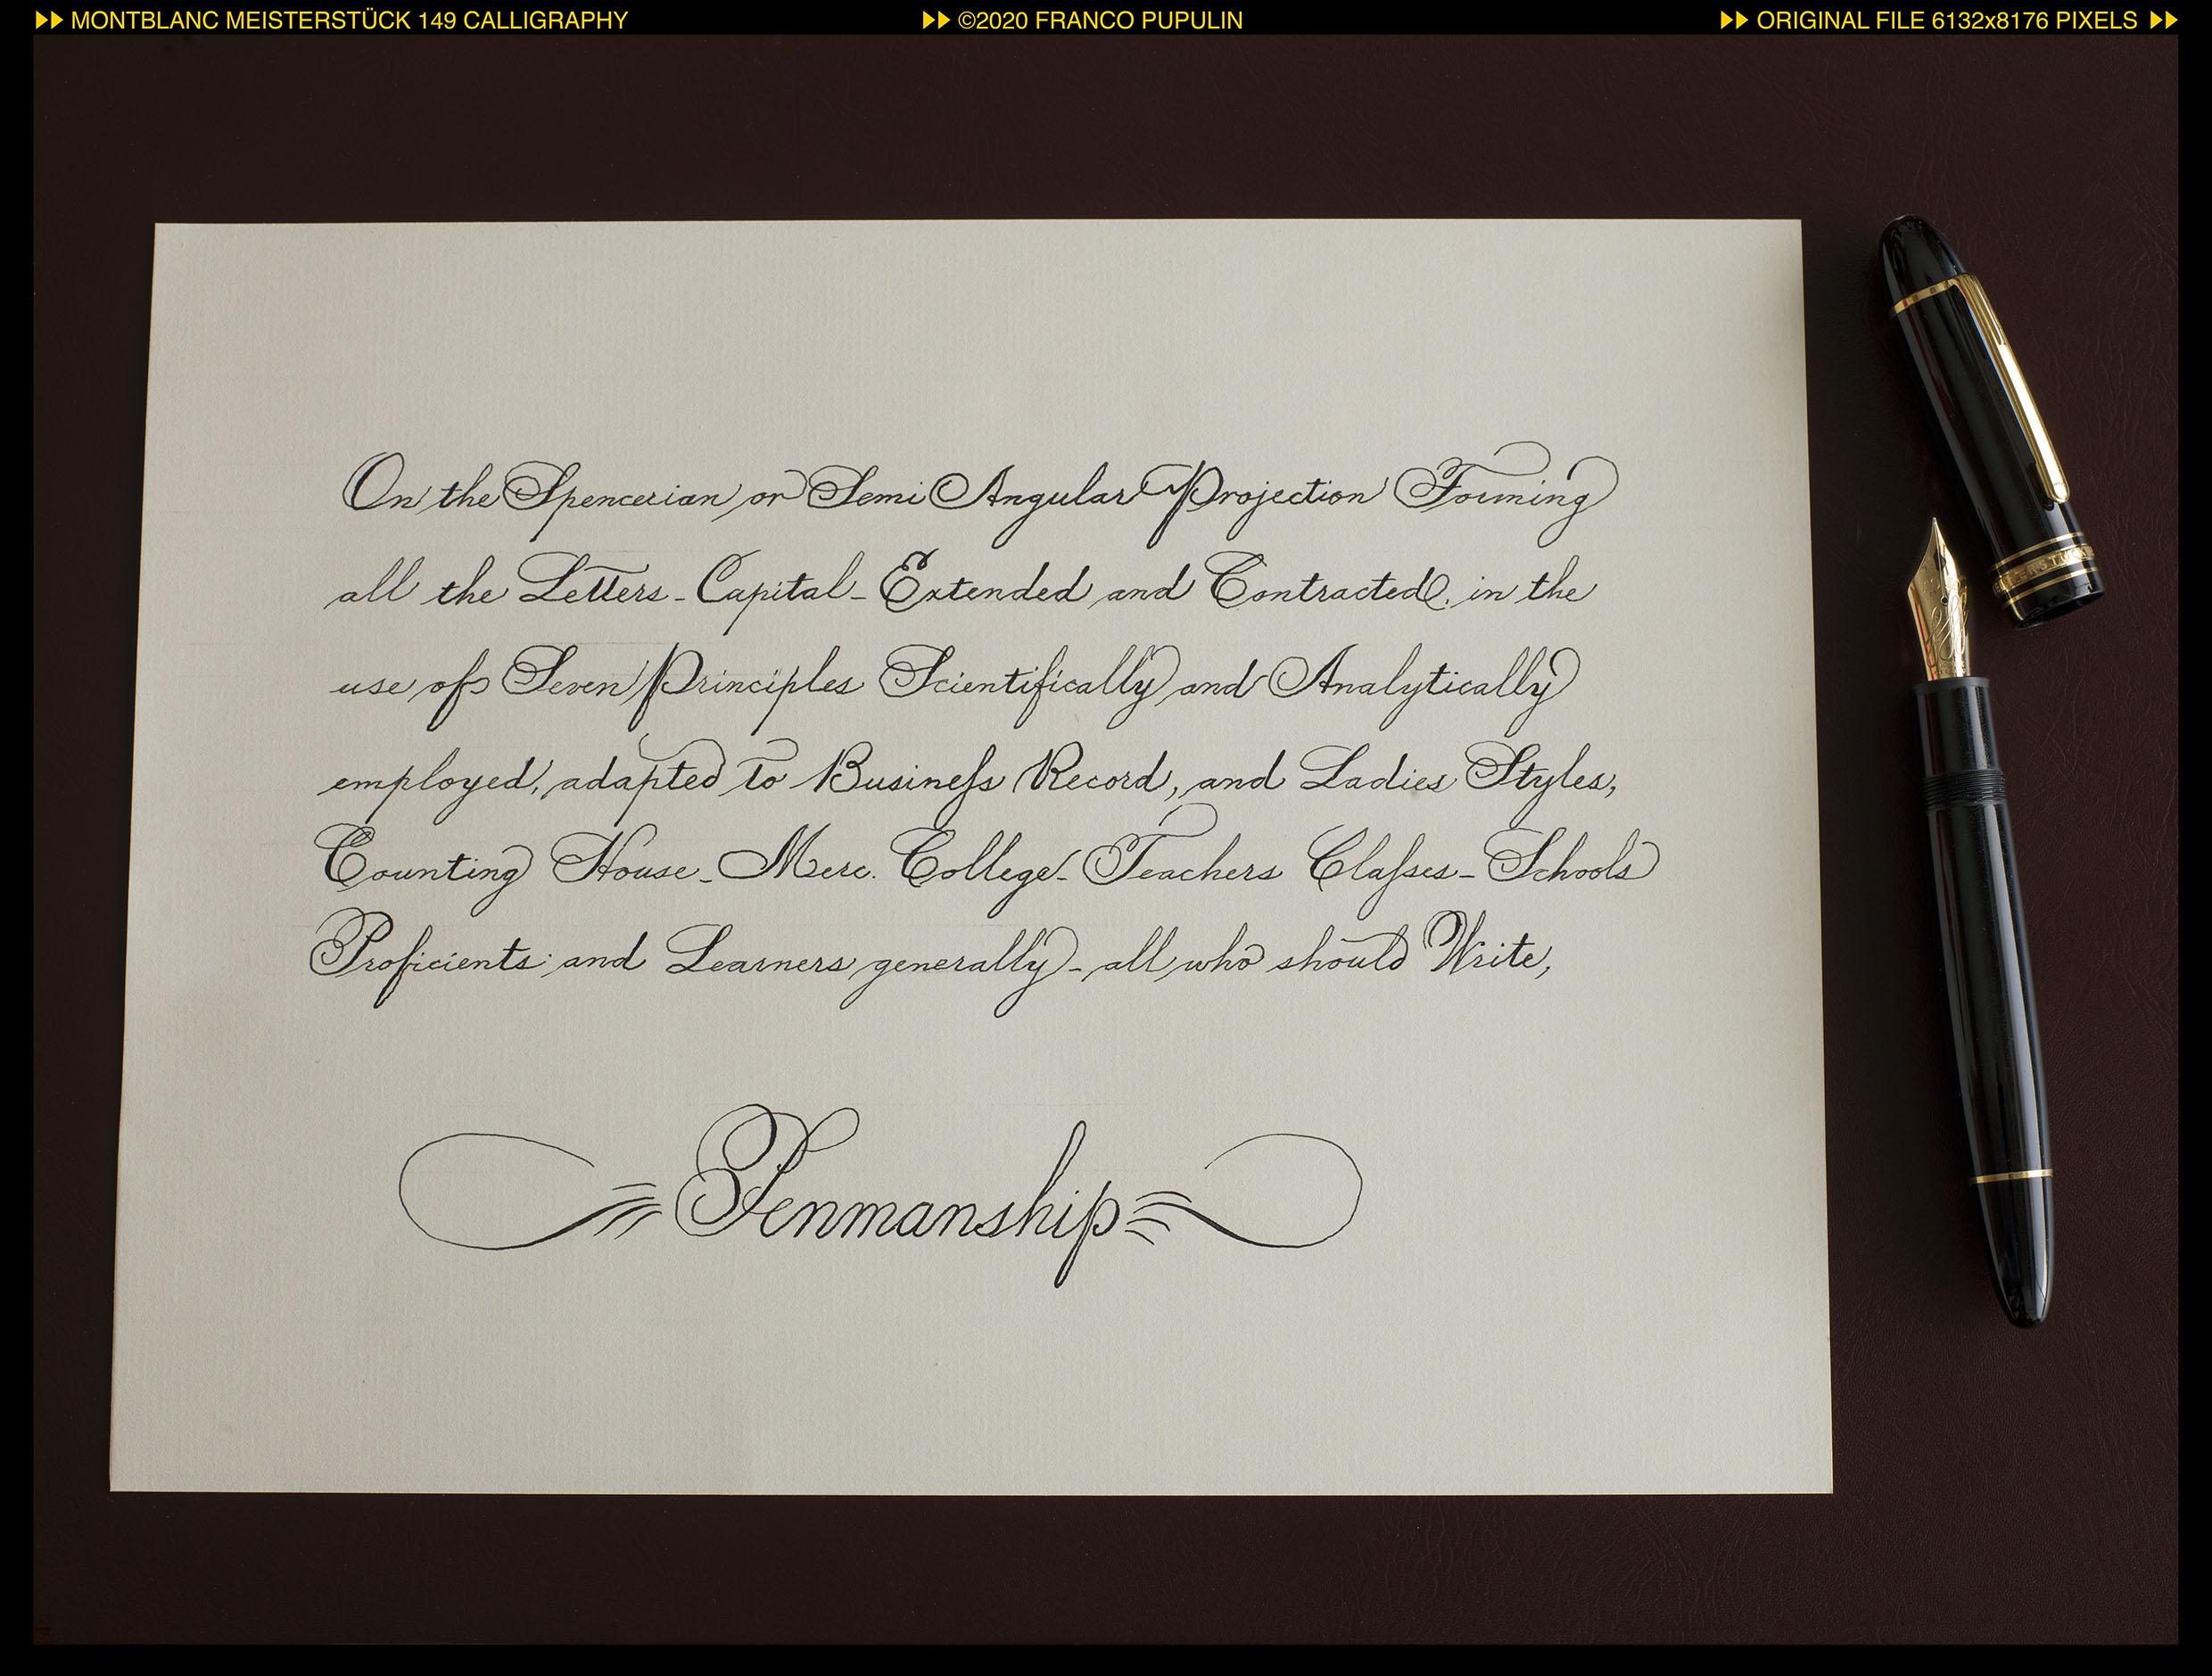 ▶▶ MONTBLANC MEISTERSTÜCK 149 CALLIGRAPHY ▶▶ ©2020 FRANCO PUPULIN ▶▶ ORIGINAL FILE 6132x8176 PIXELS ▶▶
On the Spencerian or Semi Angular Projection Forming
all the Letters - Capital - Extended and Contracted. in the
use of Seven Principles Scientifically and Analytically
employed, adapted to Busineſs Record, and Ladies Styles,
Counting House - Merc. College - Teachers Claſses - Schools
Proficients and Learners generally - all who should Write,
Penmanship